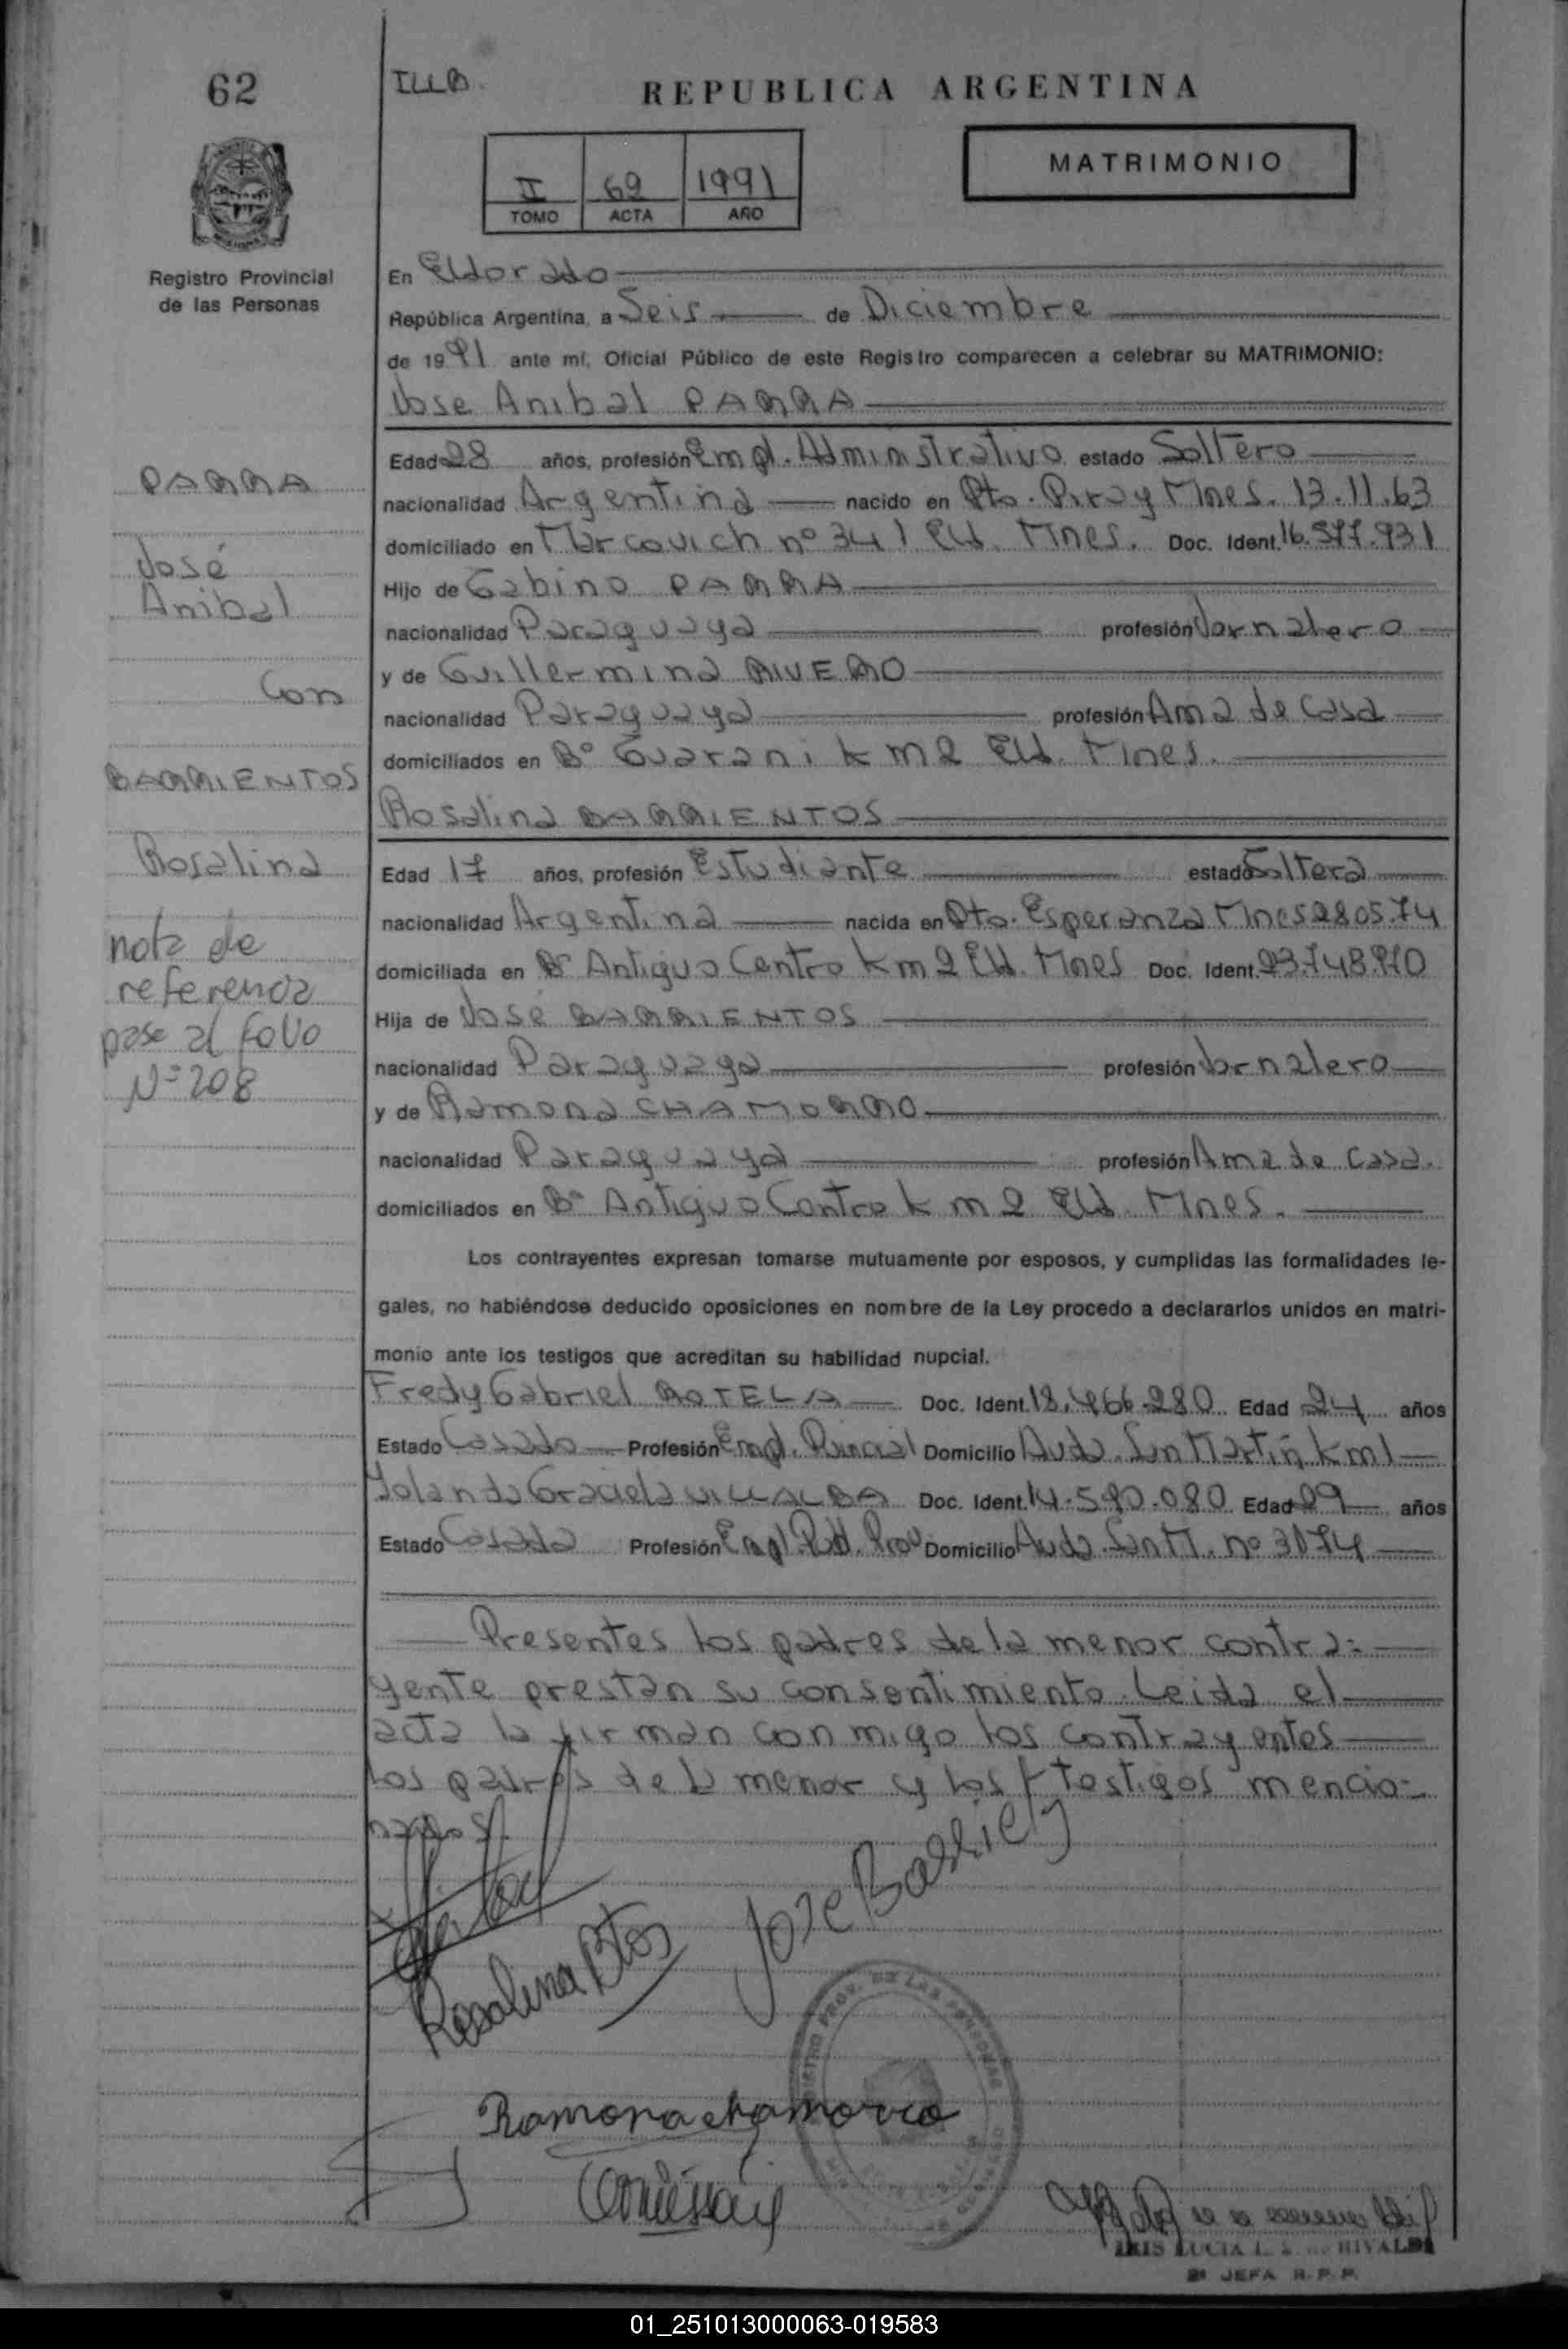 62
ILLB.
REPUBLICA ARGENTINA
MATRIMONIO
II 69 1991
TOMO ACTA AÑO
Registro Provincial
de las Personas
En Eldorado
República Argentina, a Seis de Diciembre
de 1991 ante mí, Oficial Público de este Registro comparecen a celebrar su MATRIMONIO:
Jose Anibal PARRA
Edad 28 años, profesión Empl. Administrativo estado Soltero
nacionalidad Argentina nacido en Pto. Piray Mnes. 13.11.63
domiciliado en Marcovich nº 341 Eld. Mnes. Doc. Ident. 16.577.931
Hijo de Gabino PARRA
nacionalidad Paraguaya profesión Jornalero
y de Guillermina RIVERO
nacionalidad Paraguaya profesión Ama de Casa
domiciliados en Bº Guarani km 2 Eld. Mnes.
Rosalina BARRIENTOS
Edad 17 años, profesión Estudiante estado Soltera
nacionalidad Argentina nacida en Pto. Esperanza Mnes 28.05.74
domiciliada en Bº Antiguo Centro km 2 Eld. Mnes Doc. Ident. 23.748.970
Hija de José BARRIENTOS
nacionalidad Paraguaya profesión Jornalero
y de Ramona CHAMORRO
nacionalidad Paraguaya profesión Ama de Casa.
domiciliados en Bº Antiguo Centro km 2 Eld. Mnes.
Los contrayentes expresan tomarse mutuamente por esposos, y cumplidas las formalidades le-
gales, no habiéndose deducido oposiciones en nombre de la Ley procedo a declararlos unidos en matri-
monio ante los testigos que acreditan su habilidad nupcial.
Fredy Gabriel ROTELA Doc. Ident. 18.466.280 Edad 24 años
Estado Casado Profesión Empl. Domicilio Avda. San Martin km 1
Yolanda Graciela VILLALBA Doc. Ident. 14.590.080 Edad 29 años
Estado Casada Profesión Empl. Pub. Prov Domicilio Avda. San M. nº 3074
Presentes los padres de la menor contra-
yente prestan su consentimiento. Leida el
acta la firman conmigo los contrayentes
los padres de la menor y los testigos mencio-
nados.
PARRA
José
Anibal
Con
BARRIENTOS
Rosalina
nota de
referencia
pase al folio
Nº 208
Rosalina Btos
Jose
Ramona chamorro
IRIS LUCIA L. DE RIVALDI
JEFA R.P.P.
01_251013000063-019583